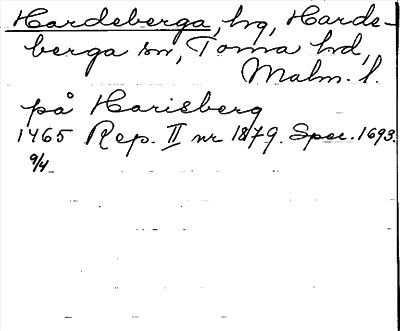 Hardeberga, hg, Harde-
berga sn, Torna hd,
Malm. l.
på Harisberg
1465 Rep. II nr 1879. Spec. 1693.
9/4